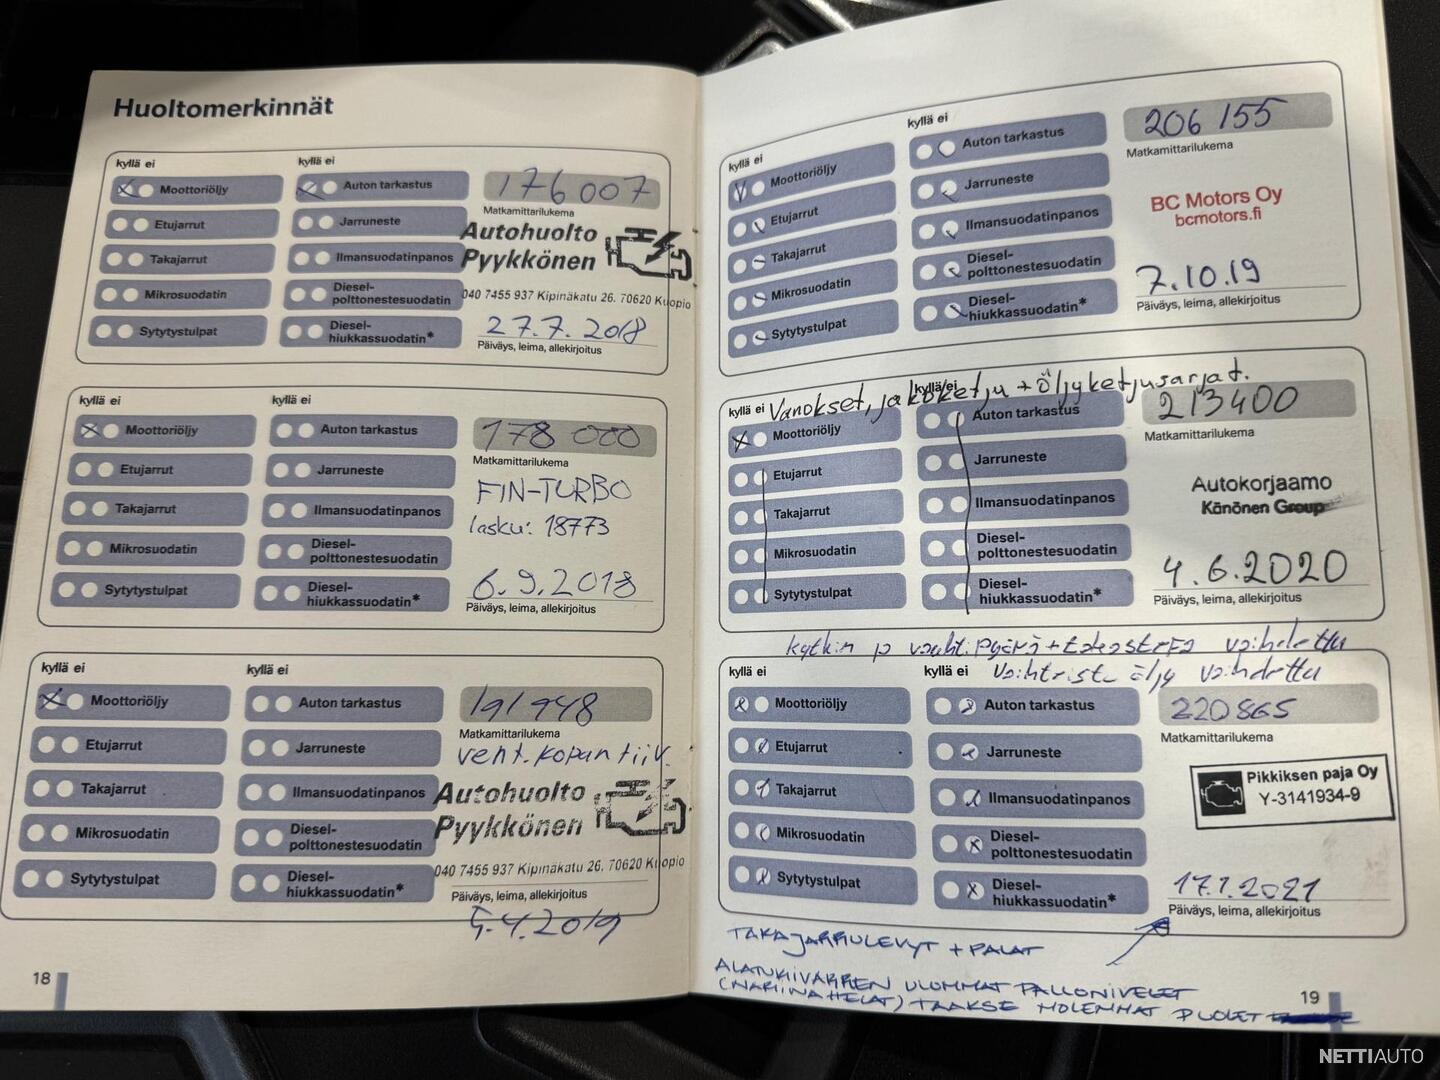 Huoltomerkinnät
kyllä ei
kyllä ei
Moottoriöljy
Auton tarkastus
176 007
Matkamittarilukema
Etujarrut
Jarruneste
Autohuolto
Pyykkönen
Takajarrut
Ilmansuodatinpanos
Mikrosuodatin
Diesel-
polttonestesuodatin
040 7455 937 Kipinäkatu 26. 70620 Kuopio
Sytytystulpat
Diesel-
hiukkassuodatin*
27.7.2018
Päiväys, leima, allekirjoitus
kyllä ei
kyllä ei
Moottoriöljy
Auton tarkastus
178 000
Matkamittarilukema
Etujarrut
Jarruneste
FIN-TURBO
Takajarrut
Ilmansuodatinpanos
lasku: 18773
Mikrosuodatin
Diesel-
polttonestesuodatin
Sytytystulpat
Diesel-
hiukkassuodatin*
6.9.2018
Päiväys, leima, allekirjoitus
kyllä ei
kyllä ei
Moottoriöljy
Auton tarkastus
191 948
Matkamittarilukema
vent.kopan tiiv.
Etujarrut
Jarruneste
Autohuolto
Pyykkönen
Takajarrut
Ilmansuodatinpanos
Mikrosuodatin
Diesel-
polttonestesuodatin
040 7455 937 Kipinäkatu 26. 70620 Kuopio
Sytytystulpat
Diesel-
hiukkassuodatin*
Päiväys, leima, allekirjoitus
5.4.2019
18
kyllä ei
kyllä ei
Moottoriöljy
Auton tarkastus
206 155
Matkamittarilukema
Etujarrut
Jarruneste
BC Motors Oy
bcmotors.fi
Takajarrut
Ilmansuodatinpanos
Mikrosuodatin
Diesel-
polttonestesuodatin
Sytytystulpat
Diesel-
hiukkassuodatin*
7.10.19
Päiväys, leima, allekirjoitus
Vanokset, jakoketju + öljyketjusarjat.
kyllä ei
kyllä ei
Moottoriöljy
Auton tarkastus
213400
Matkamittarilukema
Etujarrut
Jarruneste
Autokorjaamo
Känönen Group
Takajarrut
Ilmansuodatinpanos
Mikrosuodatin
Diesel-
polttonestesuodatin
Sytytystulpat
Diesel-
hiukkassuodatin*
4.6.2020
Päiväys, leima, allekirjoitus
kytkin ja vauhtipyörä + vaihdettu
Vaihteisto öljy vaihdettu
kyllä ei
kyllä ei
Moottoriöljy
Auton tarkastus
220865
Matkamittarilukema
Etujarrut
Jarruneste
Pikkiksen paja Oy
Y-3141934-9
Takajarrut
Ilmansuodatinpanos
Mikrosuodatin
Diesel-
polttonestesuodatin
Sytytystulpat
Diesel-
hiukkassuodatin*
Päiväys, leima, allekirjoitus
TAKAJARRULEVYT + PALAT
ALATUKIVARREN ULOMMAT PALLONIVELET
TAAKSE MOLEMMAT PUOLET
19
NETTIAUTO